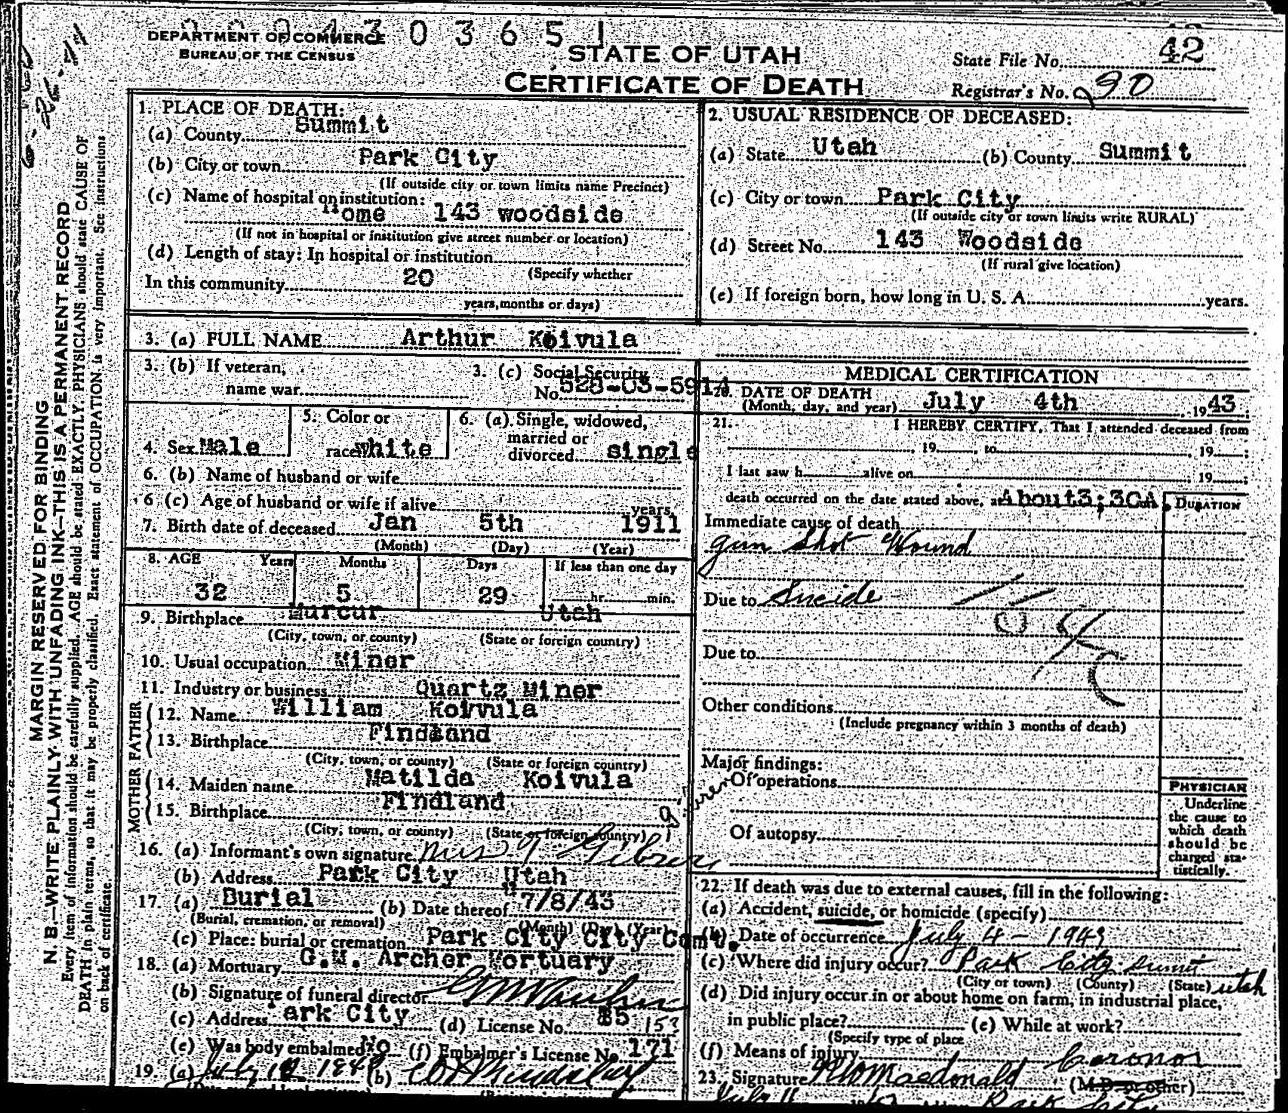 0 3 6 5 1
DEPARTMENT OF COMMERCE
BUREAU OF THE CENSUS
STATE OF UTAH
CERTIFICATE OF DEATH
State File No. 42
Registrar's No. 90
MARGIN RESERVED FOR BINDING
N. B.—WRITE PLAINLY WITH UNFADING INK—THIS IS A PERMANENT RECORD
Every item of information should be carefully supplied. AGE should be stated EXACTLY. PHYSICIANS should state CAUSE OF
DEATH in plain terms, so that it may be properly classified. Exact statement of OCCUPATION is very important. See instructions
on back of certificate.
1. PLACE OF DEATH:
(a) County Summit
(b) City or town Park City
(If outside city or town limits name Precinct)
(c) Name of hospital or institution:
Home 143 woodside
(If not in hospital or institution give street number or location)
(d) Length of stay: In hospital or institution
(Specify whether
In this community 20
years, months or days)
2. USUAL RESIDENCE OF DECEASED:
(a) State Utah (b) County Summit
(c) City or town Park City
(If outside city or town limits write RURAL)
(d) Street No. 143 Woodside
(If rural give location)
(e) If foreign born, how long in U. S. A. years.
3. (a) FULL NAME Arthur Koivula
3. (b) If veteran,
name war
3. (c) Social Security
No. 528-03-5914
4. Sex Male
5. Color or
race white
6. (a) Single, widowed,
married or
divorced single
6. (b) Name of husband or wife
6 (c) Age of husband or wife if alive years
7. Birth date of deceased Jan 5th 1911
(Month) (Day) (Year)
8. AGE Years Months Days If less than one day
32 5 29 hr. min.
9. Birthplace Murcur Utah
(City, town, or county) (State or foreign country)
10. Usual occupation Miner
11. Industry or business Quartz Miner
FATHER
12. Name William Koivula
13. Birthplace Findland
(City, town, or county) (State or foreign country)
MOTHER
14. Maiden name Matilda Koivula
15. Birthplace Findland
(City, town, or county) (State or foreign country)
16. (a) Informant's own signature Mrs
(b) Address Park City Utah
17 (a) Burial (b) Date thereof 7/8/43
(Burial, cremation, or removal) (Month) (Day) (Year)
(c) Place: burial or cremation Park City City Cemt.
18. (a) Mortuary G.M. Archer Mortuary
(b) Signature of funeral director
(c) Address Park City (d) License No.
(e) Was body embalmed? No (f) Embalmer's License No. 171
19. (a) July (b)
MEDICAL CERTIFICATION
20. DATE OF DEATH
(Month, day, and year) July 4th, 1943
21. I HEREBY CERTIFY, That I attended deceased from
, 19 , to , 19 ;
I last saw h alive on , 19 ;
death occurred on the date stated above, at About 3;30A
DURATION
Immediate cause of death
gun Shot Wound
Due to Sucide
Due to
Other conditions
(Include pregnancy within 3 months of death)
Major findings:
Of operations
Of autopsy
PHYSICIAN
Underline
the cause to
which death
should be
charged sta-
tistically.
22. If death was due to external causes, fill in the following:
(a) Accident, suicide, or homicide (specify)
(b) Date of occurrence July 4 - 1943
(c) Where did injury occur? Park City Summit Utah
(City or town) (County) (State)
(d) Did injury occur in or about home on farm, in industrial place,
in public place? (e) While at work?
(Specify type of place
(f) Means of injury
Coronor
23. Signature Macdonald (M.D. or other)